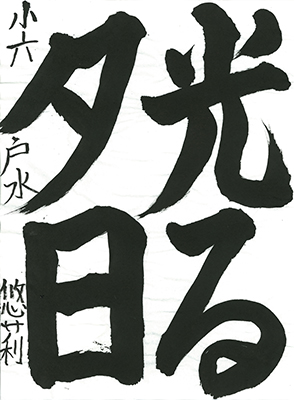 光る
夕日
小六 戸水 悠莉